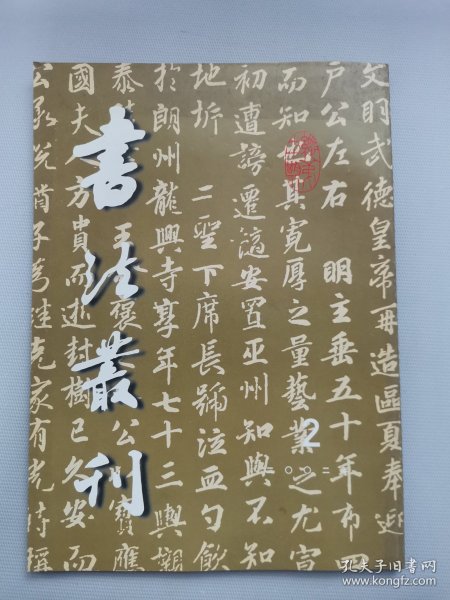 書法叢刊
2
二〇〇二
文明武德皇帝再造區夏奉迎
户公左右 明主垂五十年布
而知也其寬厚之量藝業之尤宜
初遭謗遷隨安置巫州知與不知
地圻 二聖下席長號泣血勺飲
於朗州龍興寺享年七十三輿櫬
泰 王 褒 公 寶應
國夫人方貴而逝封樹已久安而
公承 猶子為 克家有光特稱
孔夫子旧书网
book.kongfz.com